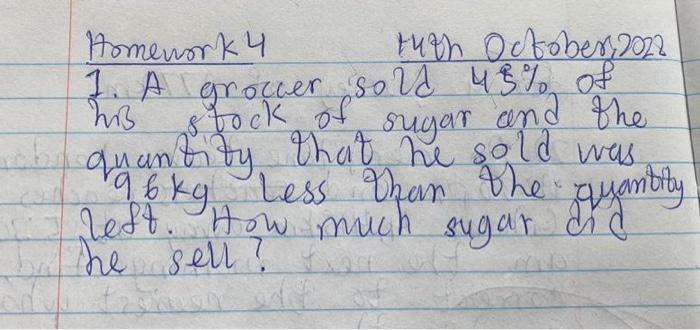 Homework 4 14th October, 2022
1. A groccer sold 45% of
his stock of sugar and the
quantity that he sold was
96kg less than the quantity
left. How much sugar did
he sell?